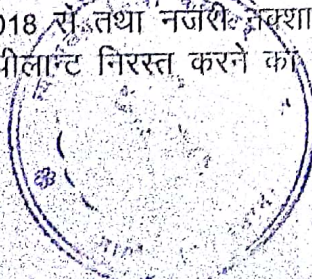 018 से तथा नजरी नक्शा
पीलान्ट निरस्त करने का